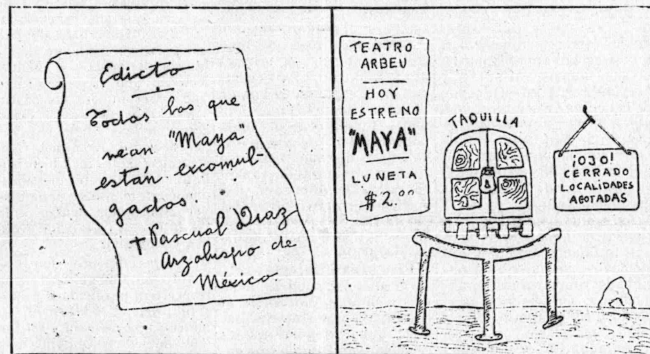 Edicto
Todos los que
vean "Maya"
están excomul-
gados.
† Pascual Diaz
Arzobispo de
México
TEATRO
ARBEU
HOY
ESTRENO
"MAYA"
LUNETA
$2.00
TAQUILLA
¡OJO!
CERRADO
LOCALIDADES
AGOTADAS